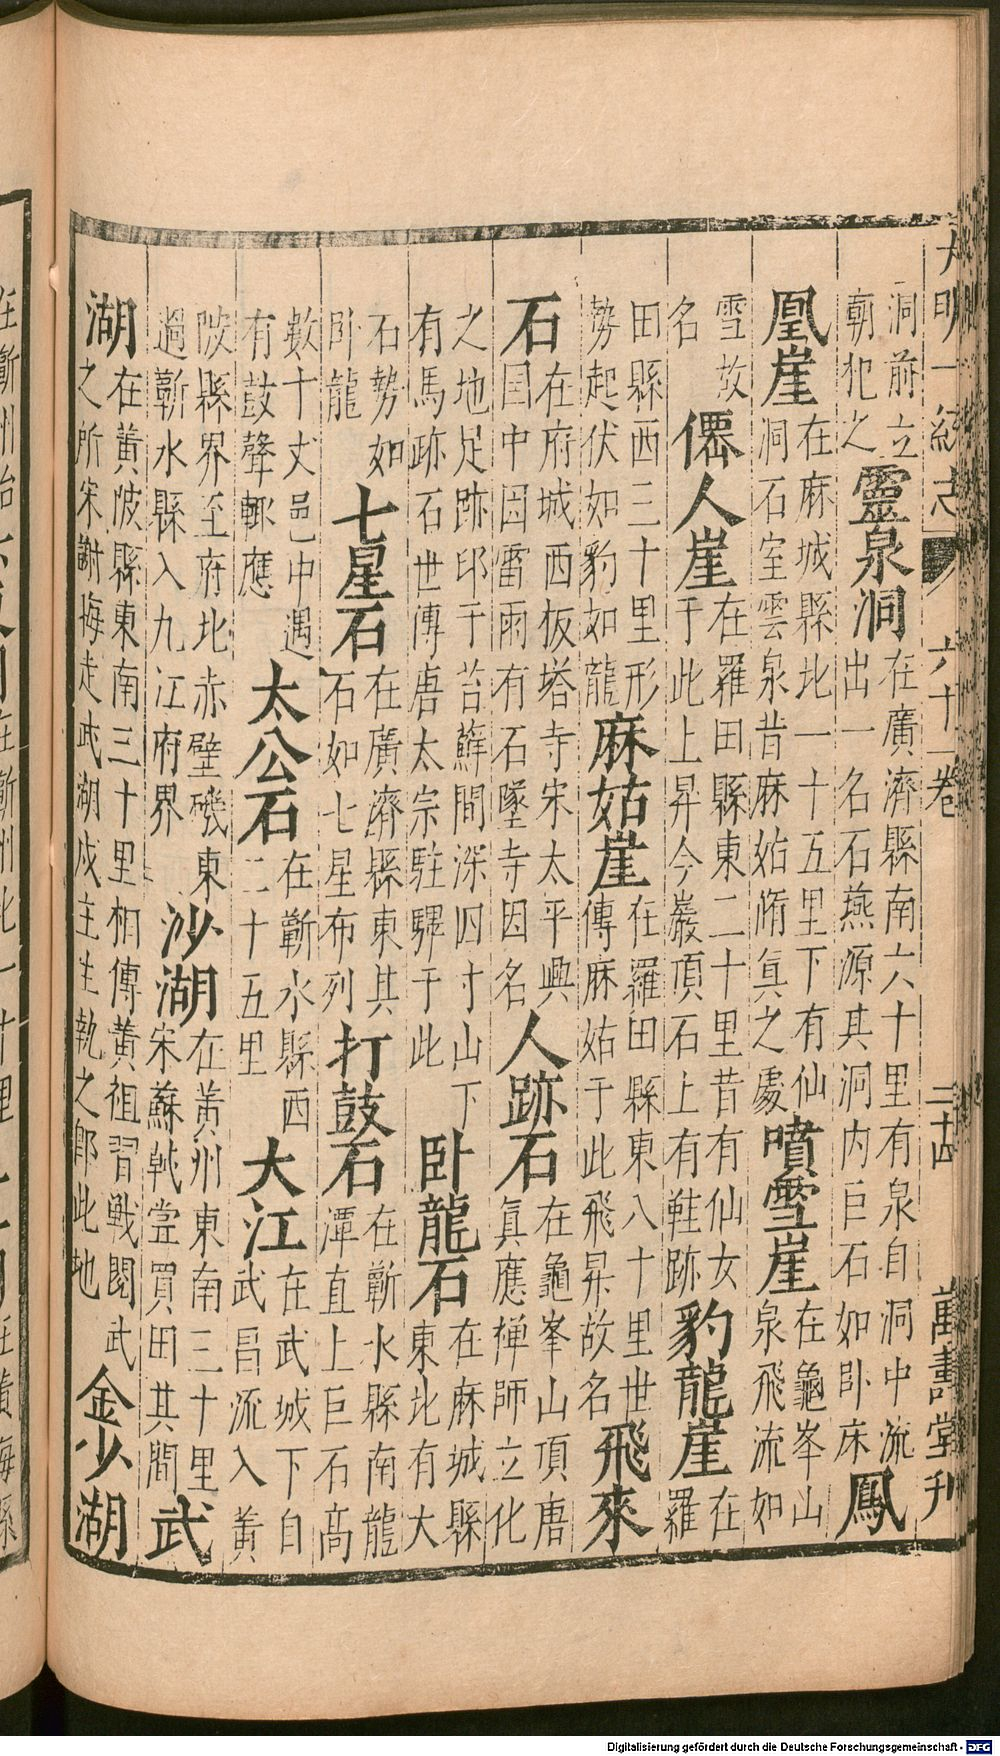 大明一統志 六十一卷 二十四 萬壽堂刊
洞前立朝犯之 靈泉洞 在廣濟縣南六十里有泉自洞中流出一名石燕源其洞内巨石如卧床 鳳
凰崖 在麻城縣北一十五里下有仙洞石室雲泉昔麻姑脩真之處 噴雪崖 在龜峯山泉飛流如
雪故名 僊人崖 在羅田縣東二十里昔有仙女于此上昇今巖頂石上有鞋跡 豹龍崖 在羅
田縣西三十里形勢起伏如豹如龍 麻姑崖 在羅田縣東八十里世傳麻姑于此飛昇故名 飛來
石 在府城西板塔寺宋太平興国中因雷雨有石墜寺因名 人跡石 在龜峯山頂唐真應禅師立化
之地足跡印于苔蘚間深四寸山下有馬跡石世傳唐太宗駐驆于此 卧龍石 在麻城縣東北有大
石勢如卧龍 七星石 在廣濟縣東其石如七星布列 打鼓石 在蘄水縣南龍潭直上巨石高
數十丈邑中遇有鼓聲輙應 太公石 在蘄水縣西二十五里 大江 在武城下自武昌流入黄
陂縣界至府北赤壁磯東過蘄水縣入九江府界 沙湖 在黄州東南三十里宋蘇軾甞買田其間 武
湖 在黄陂縣東南三十里相傳黄祖習戰閱武之所宋謝晦走武湖戍主生執之即此地 金少湖
Digitalisierung gefördert durch die Deutsche Forschungsgemeinschaft - DFG